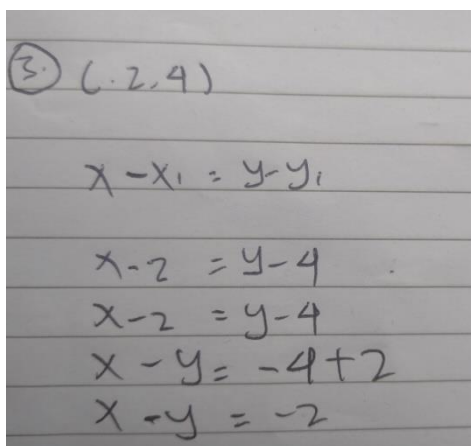 3. (.2,4)
x - x₁ = y - y₁
x - 2 = y - 4
x - 2 = y - 4
x - y = -4 + 2
x - y = -2